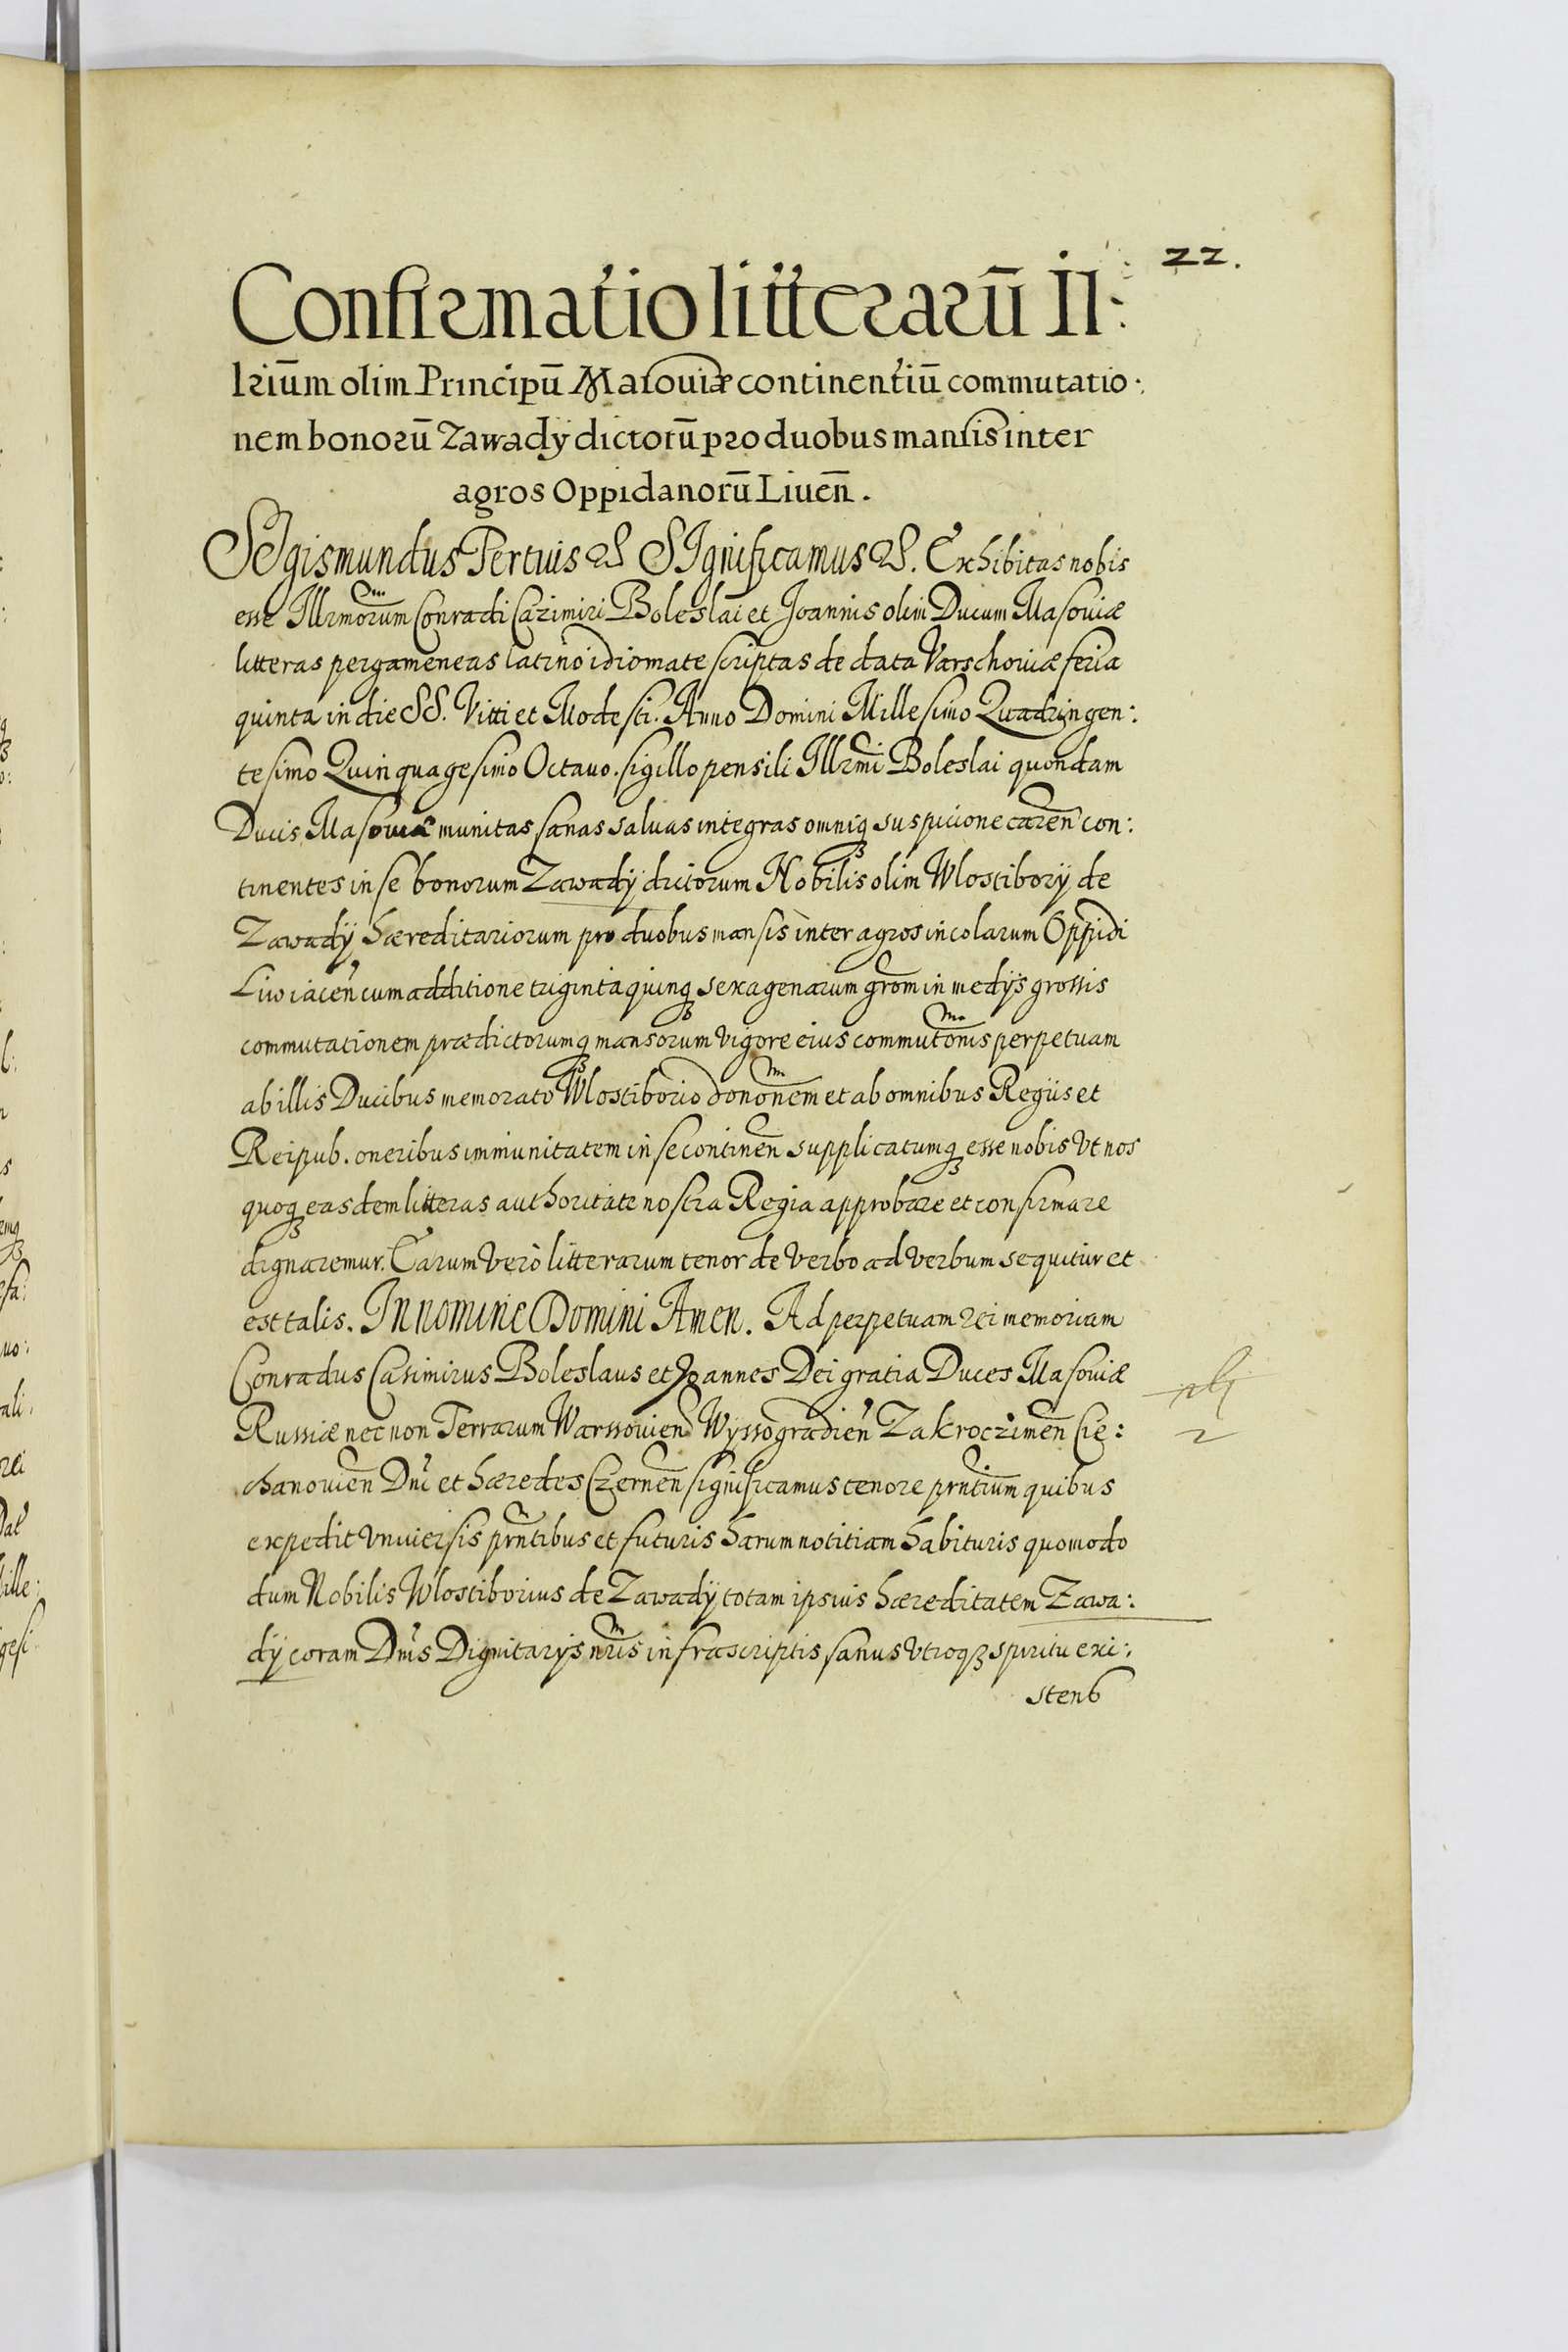 22.
Confirmatio litterarū Il:
lriūm olim Principū Masouiæ continentiū commutatio:
nem bonorū Zawady dictorū pro duobus mansis inter
agros Oppidanorū Liuēn.
SIgismundus Tertius &. SIgnificamus &. Exhibitas nobis
esse Illrmorum Conradi Cazimiri Boleslai et Joannis olim Ducum Masouiæ
litteras pergameneas latino idiomate scriptas de data Varschouiæ feria
quinta in die SS. Vitti et Modesti. Anno Domini Millesimo Quadringen:
tesimo Quinquagesimo Octauo. sigillo pensili Illrmi Boleslai quondam
Ducis Masouiæ munitas sanas saluas integras omniq̨ suspicione caren̄ con:
tinentes in se bonorum Zawadÿ dictorum Nobilis olim Wlostiborÿ de
Zawadÿ hæreditariorum pro duobus mansis inter agros incolarum Oppidi
Liw iacen̄ cum additione triginta quinq̨ sexagenarum grom in medÿs grossis
commutationem prædictorumq̨ mansorum vigore eius commutonis perpetuam
ab illis Ducibus memorato Wlostiborio dononem et ab omnibus Regiis et
Reipub. oneribus immunitatem in se continen̄ supplicatumq̨ esse nobis vt nos
quoq̨ easdem litteras authoritate nostra Regia approbare et confirmare
dignaremur. Earum verò litterarum tenor de verbo ad verbum sequitur et
est talis. In nomine Domini Amen. Ad perpetuam rei memoriam
Conradus Casimirus Boleslaus et Joannes Dei gratia Duces Masouiæ
Russiæ nec non Terrarum Warssouien̄ Wyssogradien̄ Zakroczimen̄ Cie:
chanouien̄ Dni et hæredes Czernen̄ significamus tenore prntium quibus
expedit vniuersis prntibus et futuris harum notitiam habituris quomodo
dum Nobilis Wlostiborius de Zawadÿ totam ipsius hæreditatem Zawa:
dÿ coram Dnis Dignitarÿs nris infrascriptis sanus vtroqȝ spiritu exi:
stens